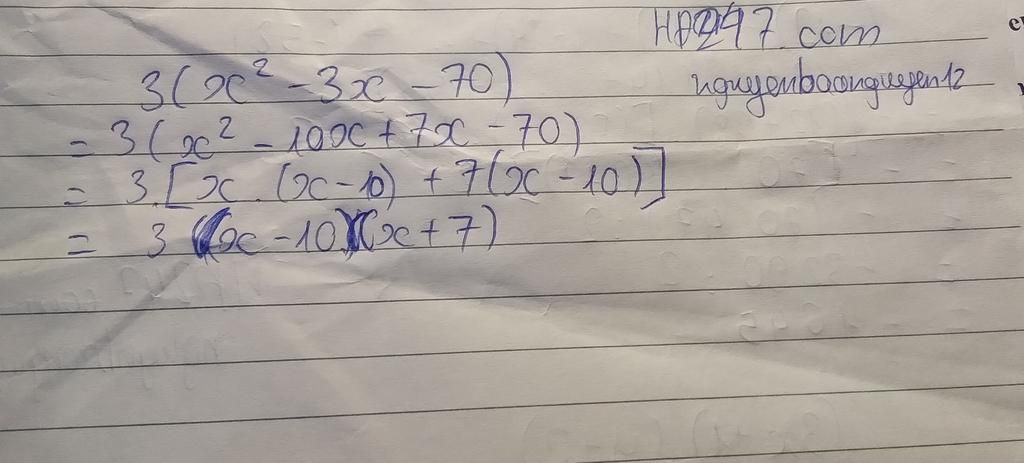 HD247.com
nguyenbaonguyen12
3(x² - 3x - 70)
= 3(x² - 10x + 7x - 70)
= 3.[x.(x - 10) + 7(x - 10)]
= 3(x - 10)(x + 7)